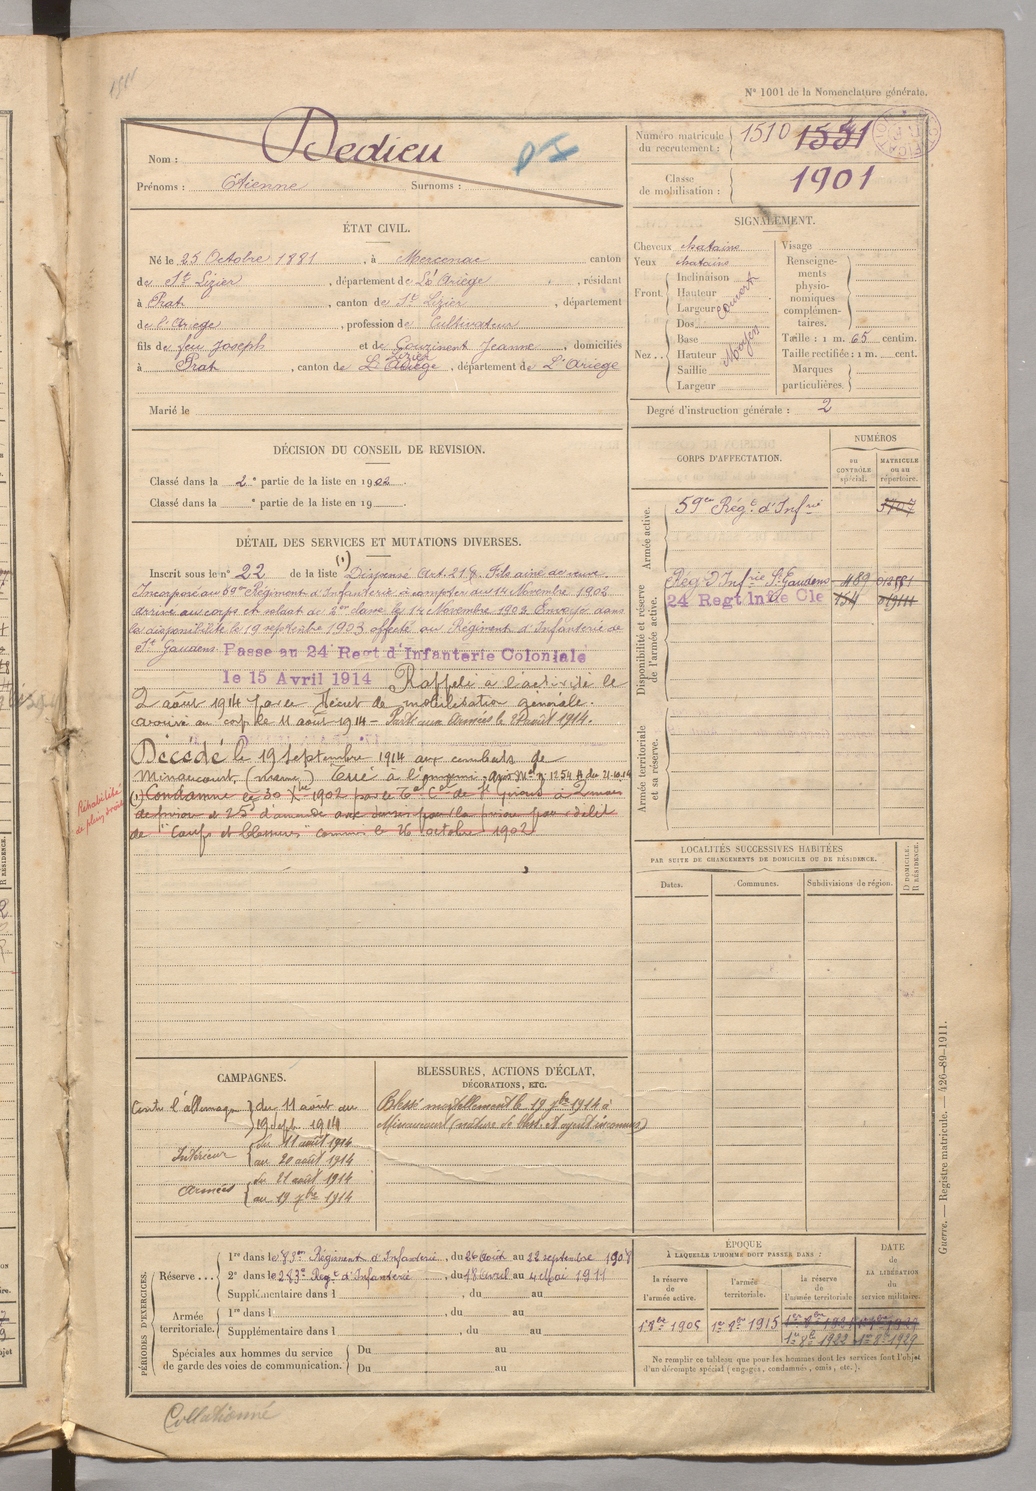 1911
N° 1001 de la Nomenclature générale.
Nom : Dedieu
Prénoms : Etienne Surnoms :
Numéro matricule du recrutement : 1510 1551
Classe de mobilisation : 1901
ÉTAT CIVIL.
Né le 25 Octobre 1881, à Mercenac canton
de St Lizier, département de L'Ariège, résidant
à Prat, canton de St Lizier, département
de l'Ariege, profession de Cultivateur
fils de feu Joseph et de Gouzinent Jeanne, domiciliés
à Prat, canton de Lizier, département de L'Ariege
Marié le
SIGNALEMENT.
Cheveux chatains
Yeux chatains
Front
Inclinaison
Hauteur
Largeur
couvert
Nez
Dos
Base
Hauteur
Saillie
Largeur
Moyen
Visage
Renseignements physionomiques complémentaires.
Taille : 1 m. 65 centim.
Taille rectifiée : 1 m. cent.
Marques particulières.
Degré d'instruction générale : 2
DÉCISION DU CONSEIL DE REVISION.
Classé dans la 2e partie de la liste en 1902.
Classé dans la e partie de la liste en 19
CORPS D'AFFECTATION.
NUMÉROS
DU CONTRÔLE spécial.
MATRICULE ou au répertoire.
Armée active.
59em Rég.t d'Infrie 3707
Disponibilité et réserve de l'armée active.
Rég. d'Infrie St Gaudens 489 012881
24 Regt Inf.ie Cle 154
Armée territoriale et sa réserve.
DÉTAIL DES SERVICES ET MUTATIONS DIVERSES.
Inscrit sous le n° 22 de la liste (1) Dispensé Art. 21 § . Fils ainé de veuve.
Incorporé au 59e Régiment d'Infanterie à compter du 14 Novembre 1902
Arrivé au corps et soldat de 2em classe le 14 Novembre 1902. Envoyé dans
la disponibilité le 19 septembre 1903 affecté au Régiment d'Infanterie de
St Gaudens. Passe au 24 Regt d'Infanterie Coloniale
le 15 Avril 1914 Rappelé à l'activité le
2 août 1914 par le Décret de mobilisation générale.
arrivé au corp le 11 août 1914 - Parti aux Armées le 21 août 1914.
Décédé le 19 Septembre 1914 aux combats de
Minaucourt (marne) Tué à l'ennemi, avis Mel n° 1254 A du 21-10-14
(1) Condamné le 30 Xbre 1902 par le Tal Cel de St Girons à 2 mois
de prison et 25f d'amende avec sursis pour la prison pour délit
de "Coups et blessures" commis le 26 octobre 1902.
Réhabilité de plein droit
LOCALITÉS SUCCESSIVES HABITÉES
PAR SUITE DE CHANGEMENTS DE DOMICILE OU DE RÉSIDENCE.
Dates.
Communes.
Subdivisions de région.
D DOMICILE.
R RÉSIDENCE.
CAMPAGNES.
Contre l'allemagne du 11 août au
19 sept. 1914
Intérieur du 11 août 1914
au 20 août 1914
Armées du 21 août 1914
au 19 7bre 1914
BLESSURES, ACTIONS D'ÉCLAT,
DÉCORATIONS, ETC.
Blessé mortellement le 19 7bre 1914 à
Minaucourt (nature de bless. et agent inconnus)
PÉRIODES D'EXERCICES.
Réserve...
1re dans le 83em Régiment d'Infanterie, du 26 Août au 22 septembre 1908
2e dans le 283e Reg.t d'Infanterie, du 18 avril au 4 Mai 1911
Supplémentaire dans l , du au
Armée territoriale.
1re dans l , du au
Supplémentaire dans l , du au
Spéciales aux hommes du service de garde des voies de communication.
Du au
Du au
ÉPOQUE
À LAQUELLE L'HOMME DOIT PASSER DANS :
la réserve de l'armée active.
l'armée territoriale.
la réserve de l'armée territoriale
DATE de LA LIBÉRATION du service militaire.
1er 8bre 1905
1er 8bre 1915
1er 8bre 1922 1er 8bre 1929
Ne remplir ce tableau que pour les hommes dont les services font l'objet
d'un décompte spécial (engagés, condamnés, omis, etc.).
Guerre. — Registre matricule. — 426-89-1911.
Collationné